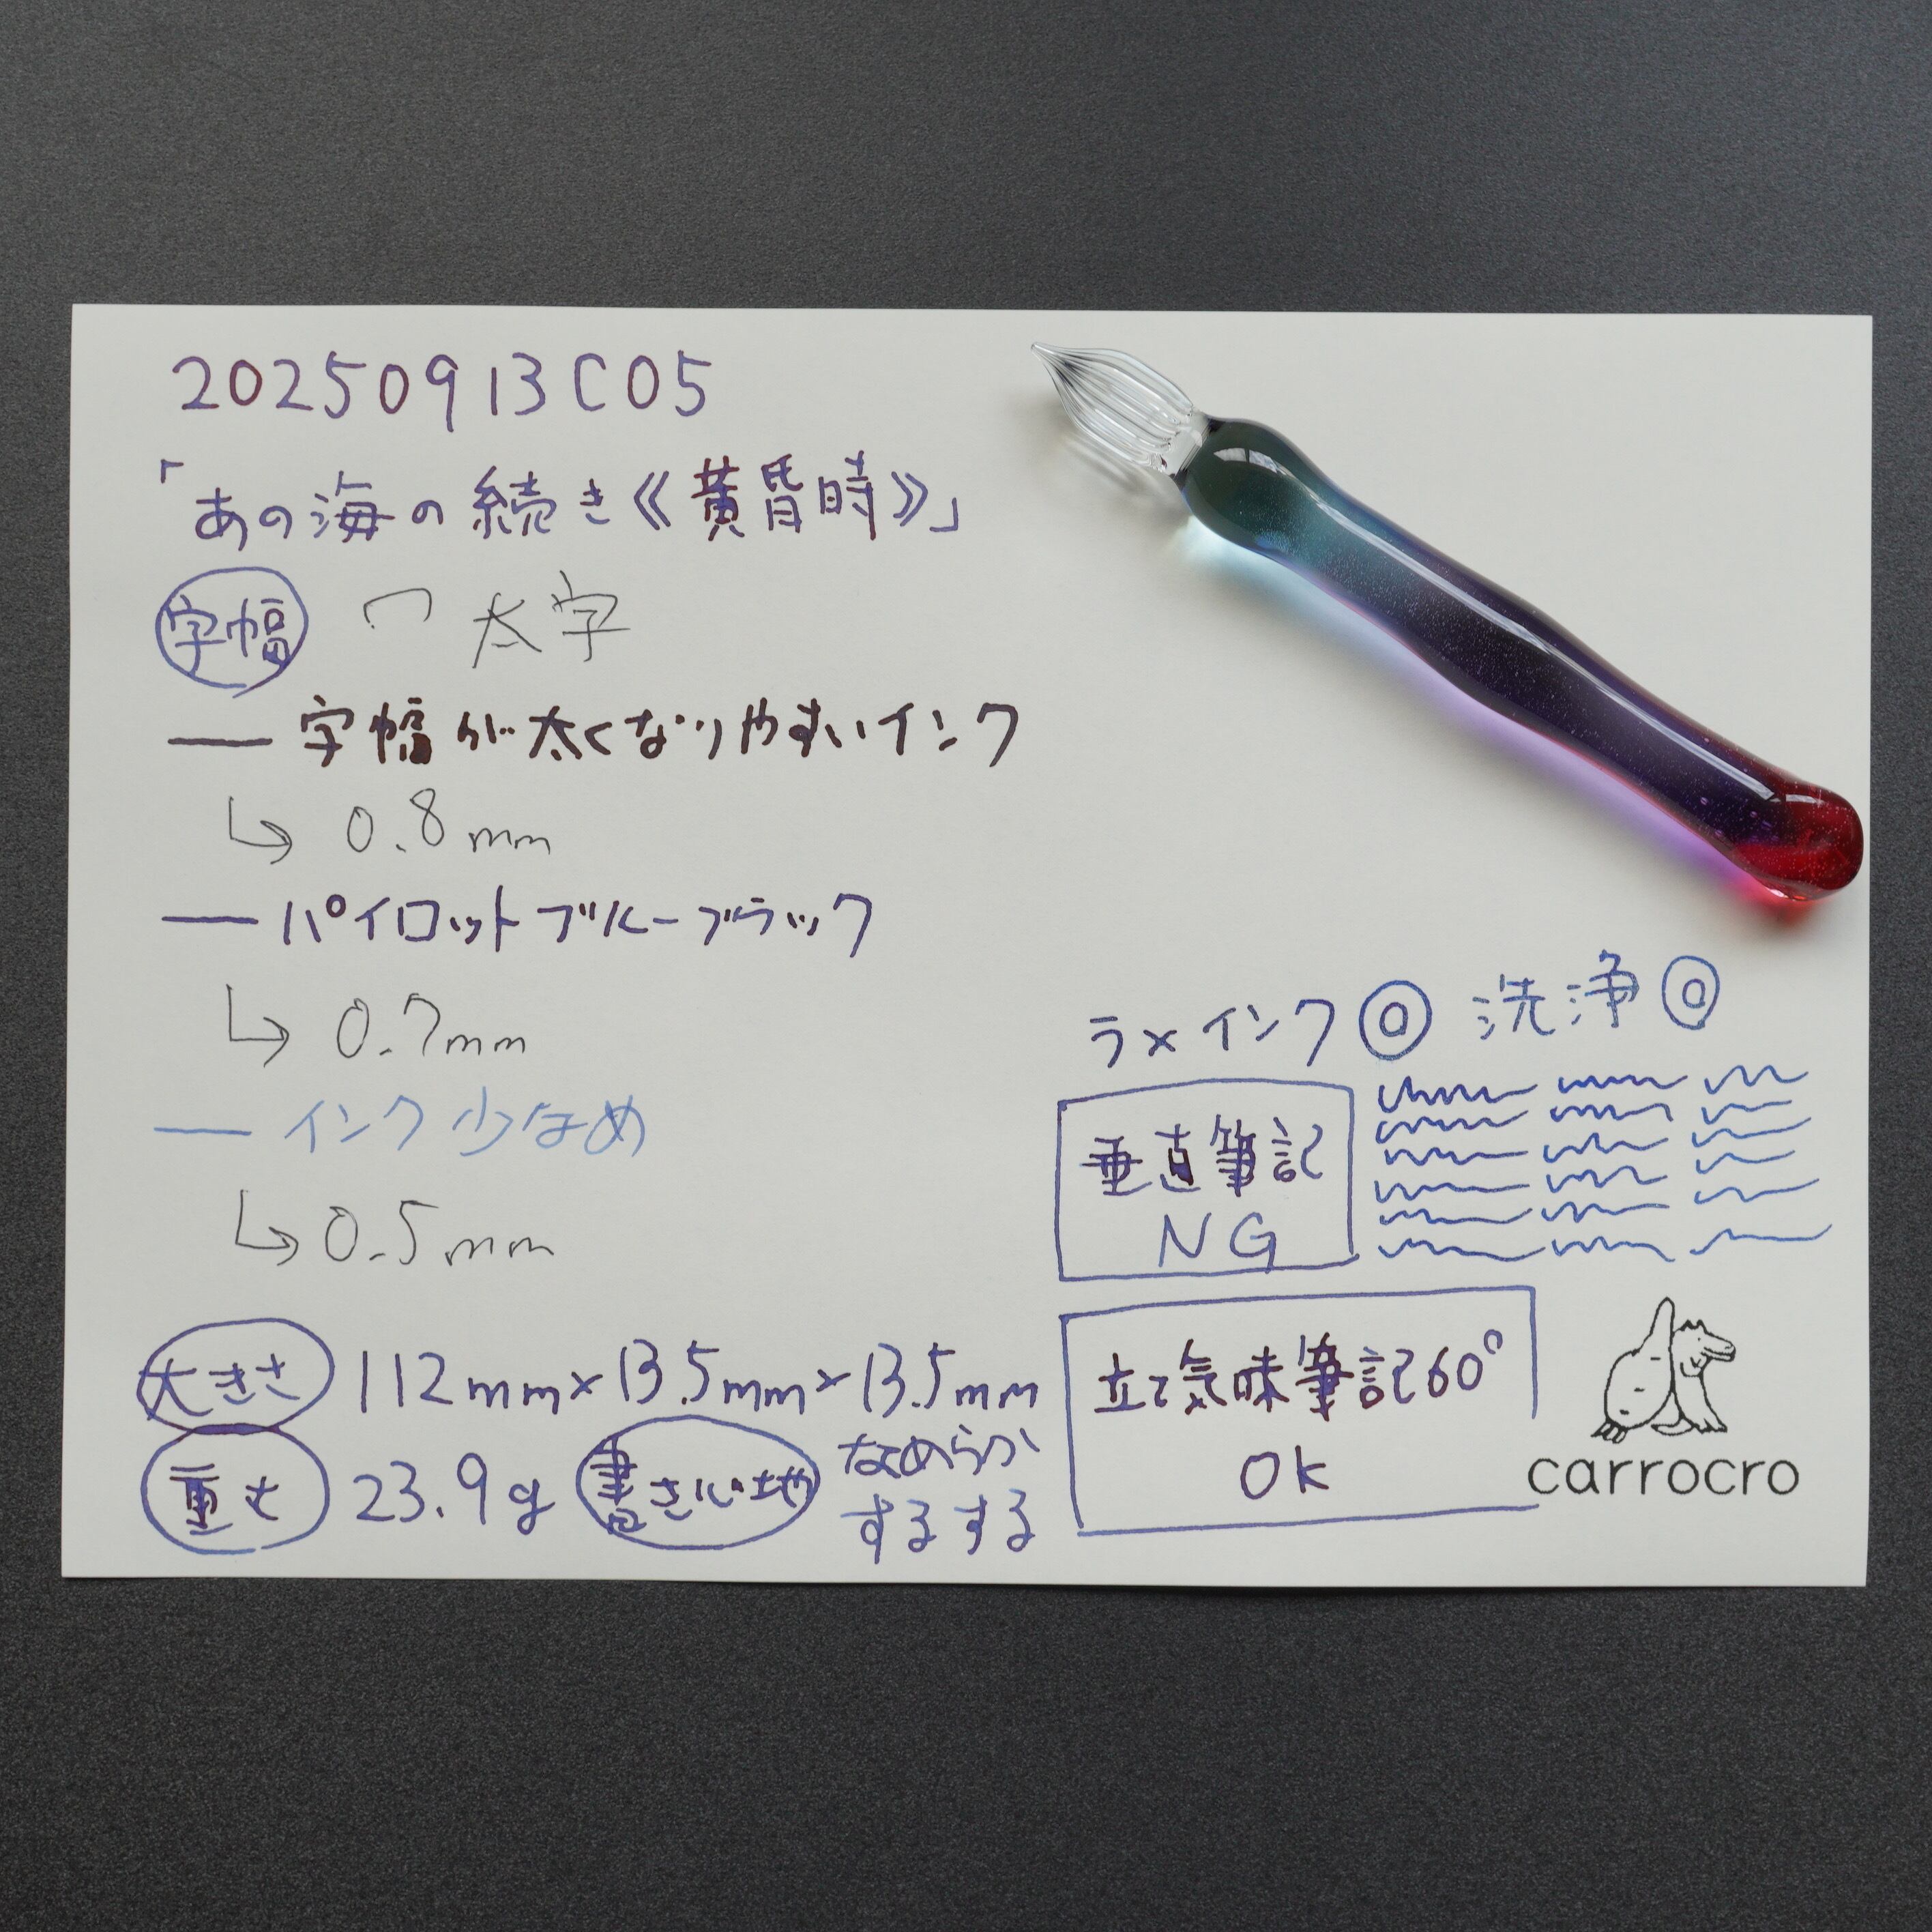 20250913C05
「あの海の続き《黄昏時》」
字幅 つ 太字
— 字幅が太くなりやすいインク
↳ 0.8mm
— パイロットブルーブラック
↳ 0.7mm
— インク少なめ
↳ 0.5mm
ラメインク◎ 洗浄◎
垂直筆記
NG
立て気味筆記60°
OK
大きさ 112mm×13.5mm×13.5mm
重さ 23.9g 書き心地 なめらか
するする
carrocro